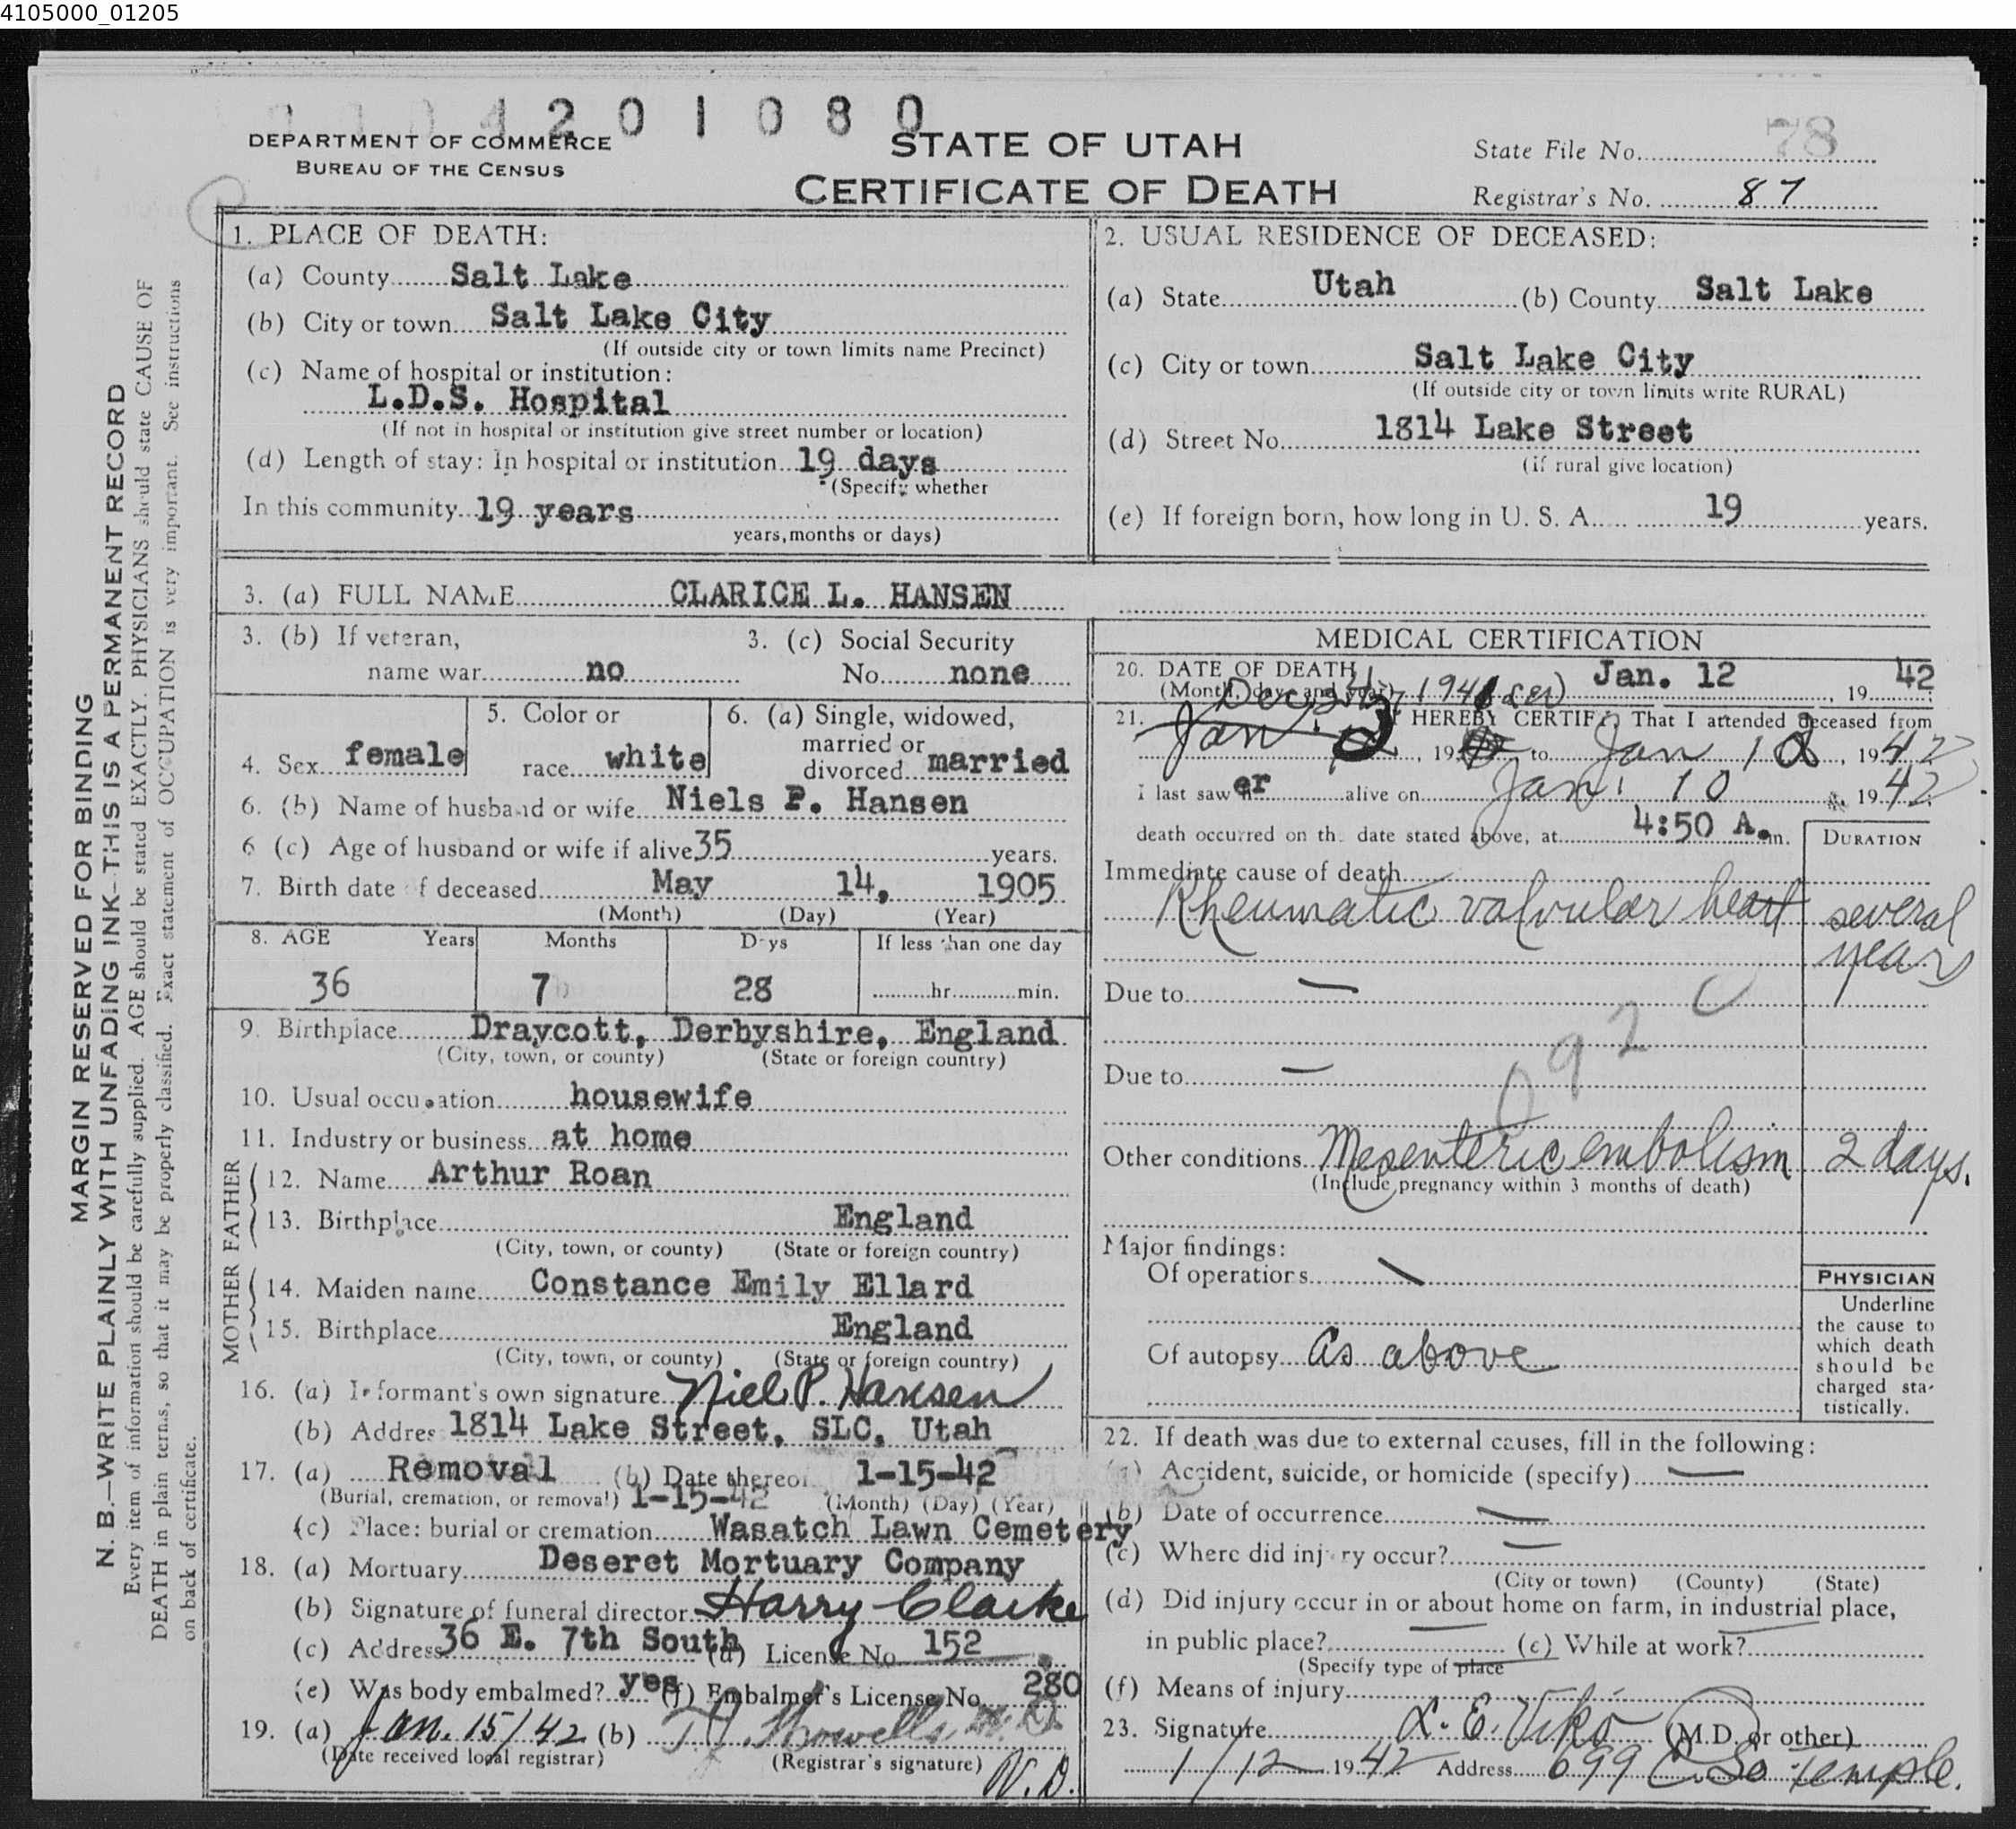 4105000_01205
4201080
DEPARTMENT OF COMMERCE
BUREAU OF THE CENSUS
STATE OF UTAH
CERTIFICATE OF DEATH
State File No. 78
Registrar's No. 87
MARGIN RESERVED FOR BINDING
N. B.—WRITE PLAINLY WITH UNFADING INK—THIS IS A PERMANENT RECORD
Every item of information should be carefully supplied. AGE should be stated EXACTLY. PHYSICIANS should state CAUSE OF
DEATH in plain terms, so that it may be properly classified. Exact statement of OCCUPATION is very important. See instructions
on back of certificate.
1. PLACE OF DEATH:
(a) County Salt Lake
(b) City or town Salt Lake City
(If outside city or town limits name Precinct)
(c) Name of hospital or institution:
L.D.S. Hospital
(If not in hospital or institution give street number or location)
(d) Length of stay: In hospital or institution 19 days
(Specify whether
In this community 19 years
years, months or days)
2. USUAL RESIDENCE OF DECEASED:
(a) State Utah (b) County Salt Lake
(c) City or town Salt Lake City
(If outside city or town limits write RURAL)
(d) Street No. 1814 Lake Street
(if rural give location)
(e) If foreign born, how long in U. S. A. 19 years.
3. (a) FULL NAME CLARICE L. HANSEN
3. (b) If veteran, 3. (c) Social Security
name war no No. none
4. Sex female 5. Color or race white 6. (a) Single, widowed, married or divorced married
6. (b) Name of husband or wife Niels P. Hansen
6 (c) Age of husband or wife if alive 35 years.
7. Birth date of deceased May 14, 1905
(Month) (Day) (Year)
8. AGE Years Months Days If less than one day
36 7 28 hr. min.
9. Birthplace Draycott, Derbyshire, England
(City, town, or county) (State or foreign country)
10. Usual occupation housewife
11. Industry or business at home
FATHER
12. Name Arthur Roan
13. Birthplace England
(City, town, or county) (State or foreign country)
MOTHER
14. Maiden name Constance Emily Ellard
15. Birthplace England
(City, town, or county) (State or foreign country)
16. (a) Informant's own signature Niel P. Hansen
(b) Address 1814 Lake Street, SLC, Utah
17. (a) Removal (b) Date thereof 1-15-42
(Burial, cremation, or removal) 1-15-42 (Month) (Day) (Year)
(c) Place: burial or cremation Wasatch Lawn Cemetery
18. (a) Mortuary Deseret Mortuary Company
(b) Signature of funeral director Harry Clarke
(c) Address 36 E. 7th South (d) License No. 152
(e) Was body embalmed? yes (f) Embalmer's License No. 280
19. (a) Jan. 15/42 (b) T. J. Howells M.D.
(Date received local registrar) (Registrar's signature)
MEDICAL CERTIFICATION
20. DATE OF DEATH Jan. 12, 1942
(Month, day, and year)
Dec 1941
21. Jan I HEREBY CERTIFY, That I attended deceased from
, 19 to Jan 12, 1942
I last saw her alive on Jan. 10, 1942
death occurred on the date stated above, at 4:50 A.m.
DURATION
Immediate cause of death
Rheumatic valvular heart several years
Due to —
092 C
Due to —
Other conditions Mesenteric embolism 2 days.
(Include pregnancy within 3 months of death)
Major findings:
Of operations
Of autopsy As above
PHYSICIAN
Underline
the cause to
which death
should be
charged sta-
tistically.
22. If death was due to external causes, fill in the following:
(a) Accident, suicide, or homicide (specify) —
(b) Date of occurrence —
(c) Where did injury occur? —
(City or town) (County) (State)
(d) Did injury occur in or about home on farm, in industrial place,
in public place? — (e) While at work?
(Specify type of place
(f) Means of injury
23. Signature L. E. Viko (M.D. or other)
1/12 1942 Address 699 E So Temple.